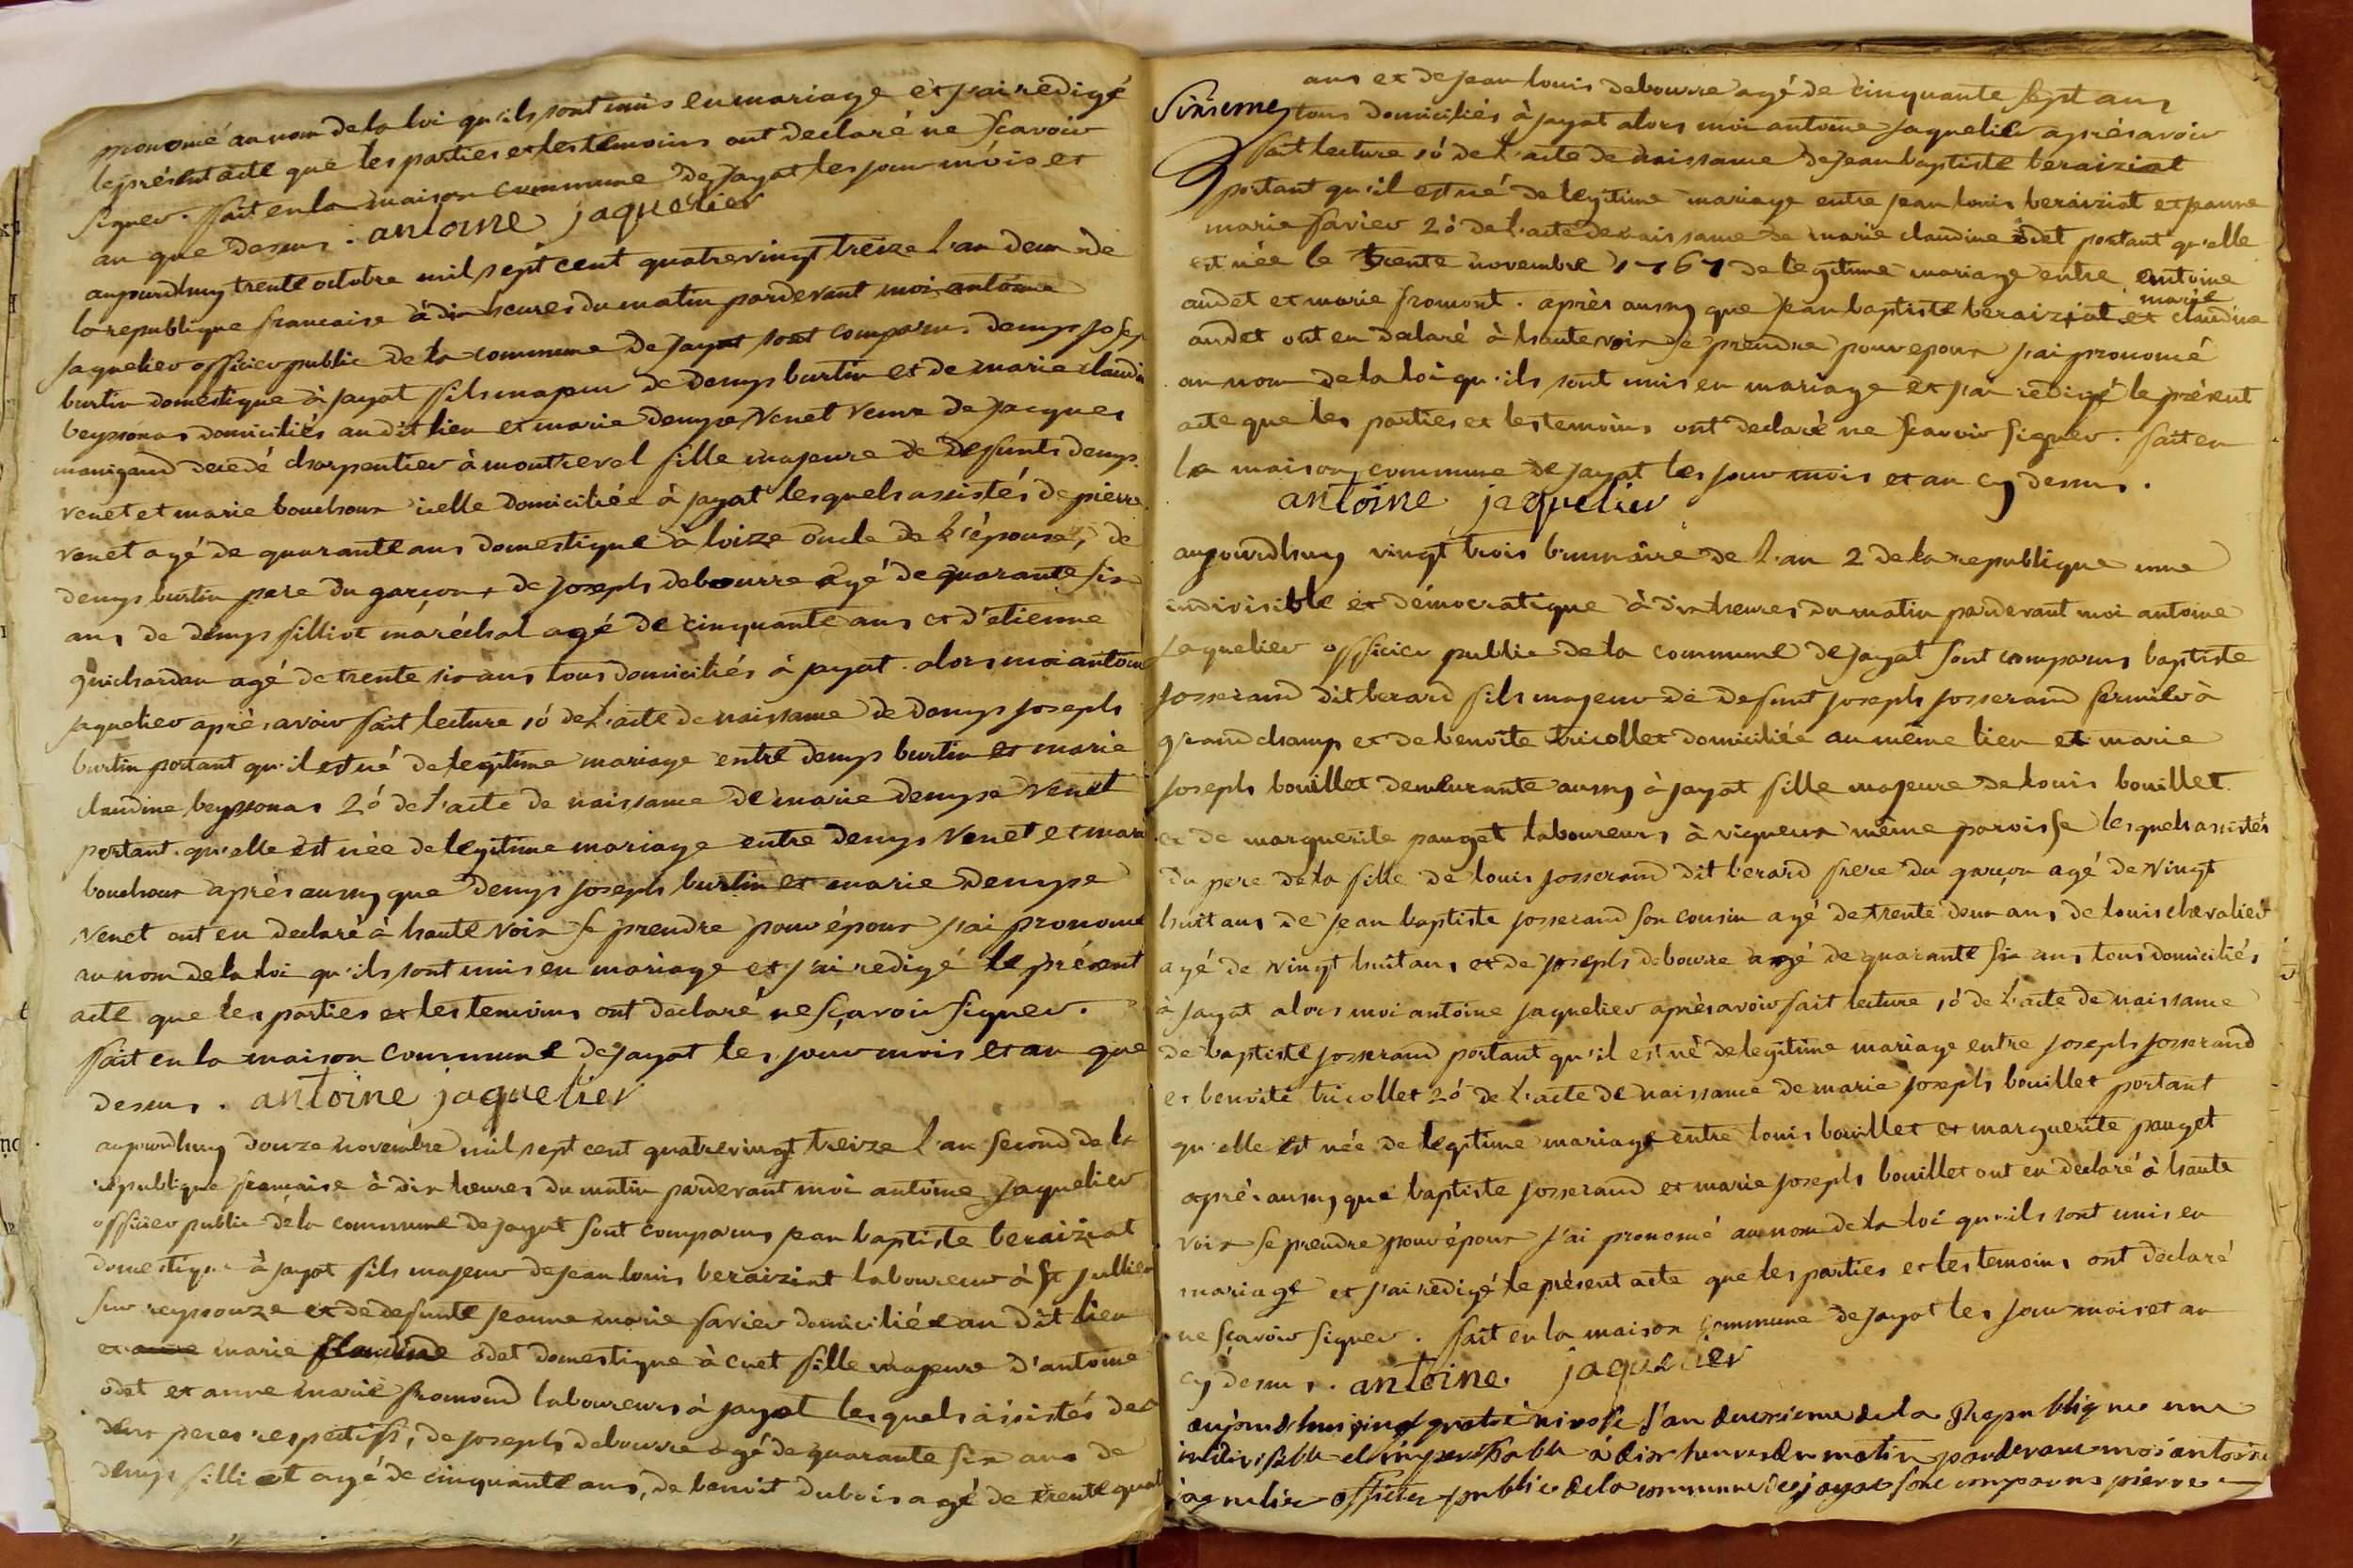 prononcé au nom de la loi qu'ils sont unis en mariage et j'ai redigé
le présent acte que les parties et les temoins ont declaré ne scavoir
signer. fait en la maison commune de jayat les jour mois et
an que dessus. antoine jaquelier
aujourdhuy trente octobre mil sept cent quatrevingt treize l'an deux de
la republique francaise à dix heures du matin pardevant moi antoine
jaquelier officier public de la commune de jayat sont comparus denys joseph
burtin domestique à jayat fils majeur de denys burtin et de marie claudine
beyssonas domiciliés audit lieu et marie denyse venet veuve de jacques
manigand decedé charpentier à montrevel fille majeure de defunts denys
venet et marie bouchoux icelle domiciliée à jayat lesquels assistés de pierre
venet agé de quarante ans domestique à loize oncle de l'épouse, de
denys burtin pere du garçon, de joseph debourre agé de quarante six
ans de denys filliot maréchal agé de cinquante ans et d'etienne
guichardan agé de trente six ans tous domiciliés à jayat. alors moi antoine
jaquelier après avoir fait lecture 1ò de l'acte de naissance de denys joseph
burtin portant qu'il est né de legitime mariage entre denys burtin et marie
claudine beyssonas 2ò de l'acte de naissance de marie denyse venet
portant qu'elle est née de legitime mariage entre denys venet et marie
bouchoux après aussy que denys joseph burtin et marie denyse
venet ont eu declaré à haute voix se prendre pour époux j'ai prononcé
au nom de la loi qu'ils sont unis en mariage et j'ai redigé le présent
acte que les parties et les temoins ont declaré ne sçavoir signer.
fait en la maison commune de jayat les jour mois et an que
dessus. antoine jaquelier
aujourdhuy douze novembre mil sept cent quatrevingt treize l'an second de la
republique francaise à dix heures du matin pardevant moi antoine jaquelier
officier public de la commune de jayat sont comparus jean baptiste beraiziat
domestique à jayat fils majeur de jean louis beraiziat laboureur à st jullien
sur reyssouze et de defunte jeanne marie favier domiciliée au dit lieu
et marie claudine odet domestique à cuet fille majeure d'antoine
odet et anne marie fromond laboureurs à jayat lesquels assistés des
deux peres respectifs, de joseph debourre agé de quarante six ans de
denys filliot agé de cinquante ans, de benoit dubois agé de trente quatre
ans et de jean louis debourre agé de cinquante sept ans
Sixieme tous domiciliés à jayat alors moi antoine jaquelier après avoir
fait lecture 1ò de l'acte de naissance de jean baptiste beraiziat
portant qu'il est né de legitime mariage entre jean louis beraiziat et jeanne
marie favier 2ò de l'acte de naissance de marie claudine odet portant qu'elle
est née le trente novembre 1767 de legitime mariage entre antoine
audet et marie fromont. après aussy que jean baptiste beraiziat et marie claudine
audet ont eu declaré à haute voix se prendre pour epoux j'ai prononcé
au nom de la loi qu'ils sont unis en mariage et j'ai redigé le présent
acte que les parties et les temoins ont declaré ne scavoir signer. fait en
la maison commune de jayat les jour mois et an cy dessus.
antoine jaquelier
aujourdhuy vingt trois brumaire de l'an 2 de la republique une
indivisible et démocratique à dix heures du matin pardevant moi antoine
jaquelier officier public de la commune de jayat sont comparus baptiste
josserand dit berard fils majeur de defunt joseph josserand fermier à
grandchamp et de benoite tricollet domiciliée au même lieu et marie
joseph bouillet demeurante aussy à jayat fille majeure de louis bouillet
et de marguerite pauget laboureurs à vigneux même paroisse lesquels assistés
du pere de la fille de louis josserand dit berard frere du garçon agé de vingt
huit ans de jean baptiste josserand son cousin agé de trente deux ans de louis chevalier
agé de vingt huit ans et de joseph debourre agé de quarante six ans tous domiciliés
à jayat alors moi antoine jaquelier après avoir fait lecture 1ò de l'acte de naissance
de baptiste josserand portant qu'il est né de legitime mariage entre joseph josserand
et benoite tricollet 2ò de l'acte de naissance de marie joseph bouillet portant
qu'elle est née de legitime mariage entre louis bouillet et marguerite pauget
après aussy que baptiste josserand et marie joseph bouillet ont eu declaré à haute
voix se prendre pour époux j'ai prononcé au nom de la loi qu'ils sont unis en
mariage et j'ai redigé le présent acte que les parties et les temoins ont déclaré
ne sçavoir signer. fait en la maison commune de jayat les jour mois et an
cy dessus. antoine jaquelier
aujourdhui vingt quatre nivose l'an deuxieme de la Republique une
indivisible et imperissable à dix heures du matin pardevant moi antoine
jaquelier officier public de la commune de jayat sont comparus pierre